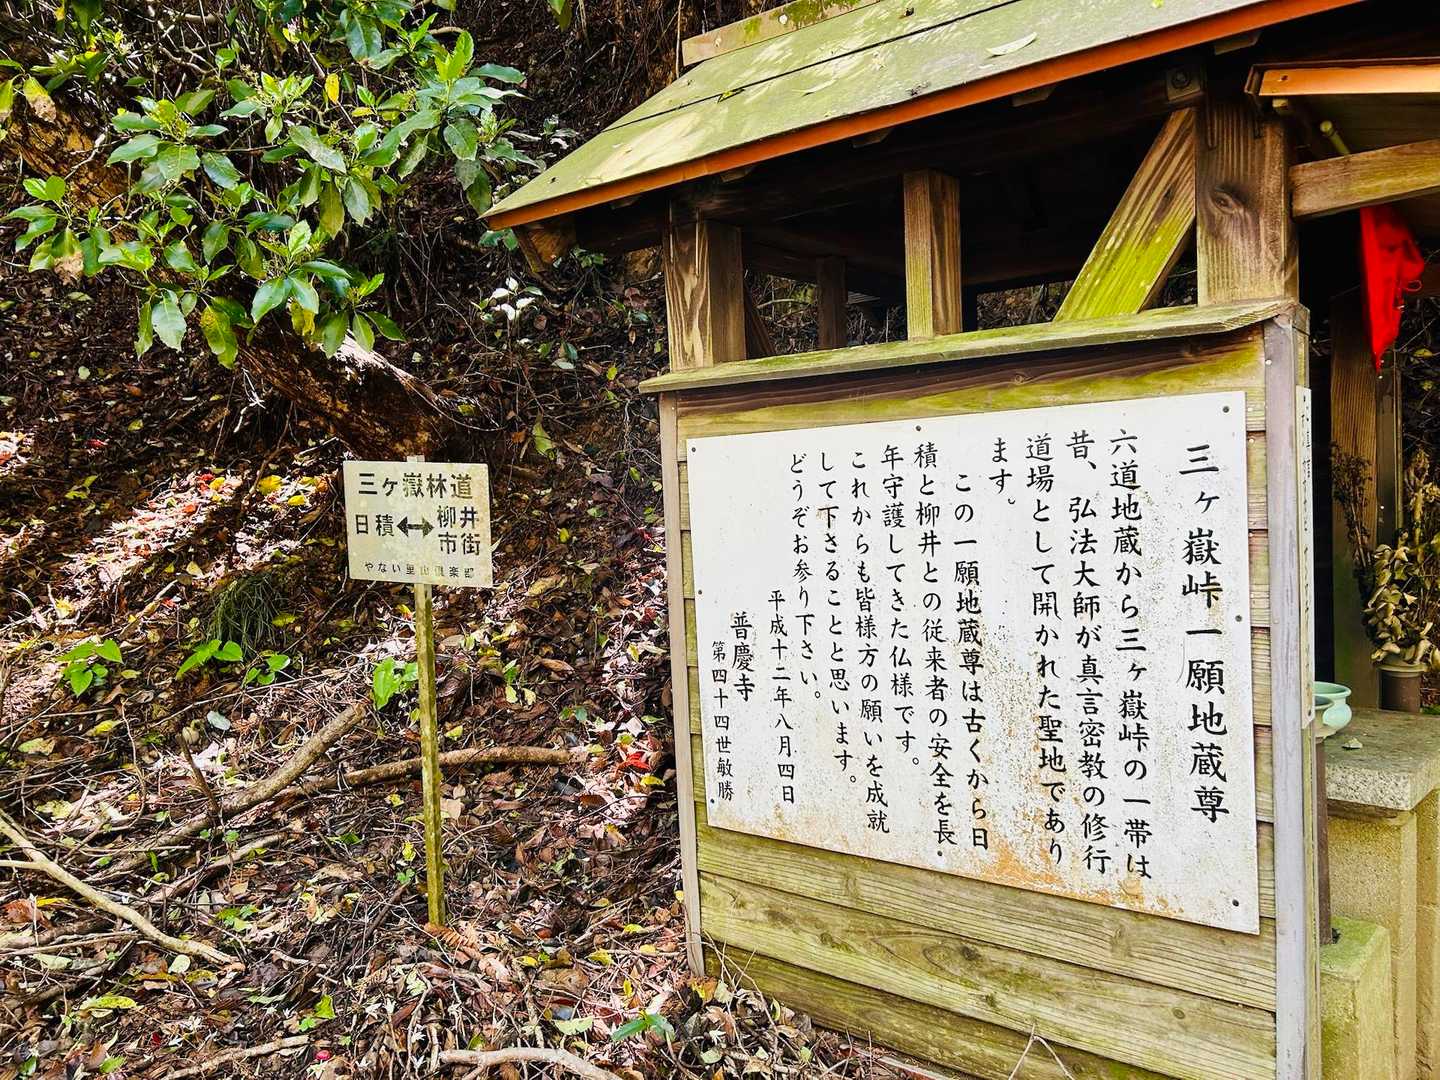 三ヶ嶽峠一願地蔵尊
六道地蔵から三ヶ嶽峠の一帯は
昔、弘法大師が真言密教の修行
道場として開かれた聖地であり
ます。
この一願地蔵尊は古くから日
積と柳井との従来者の安全を長
年守護してきた仏様です。
これからも皆様方の願いを成就
して下さることと思います。
どうぞお参り下さい。
平成十二年八月四日
普慶寺
第四十四世敏勝
三ヶ嶽林道
日積⟷柳井市街
やない里山倶楽部